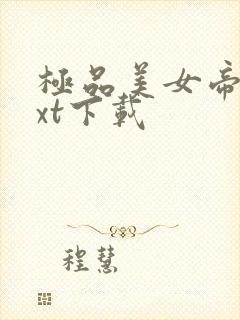 極品美女帝
xt下載
程慧